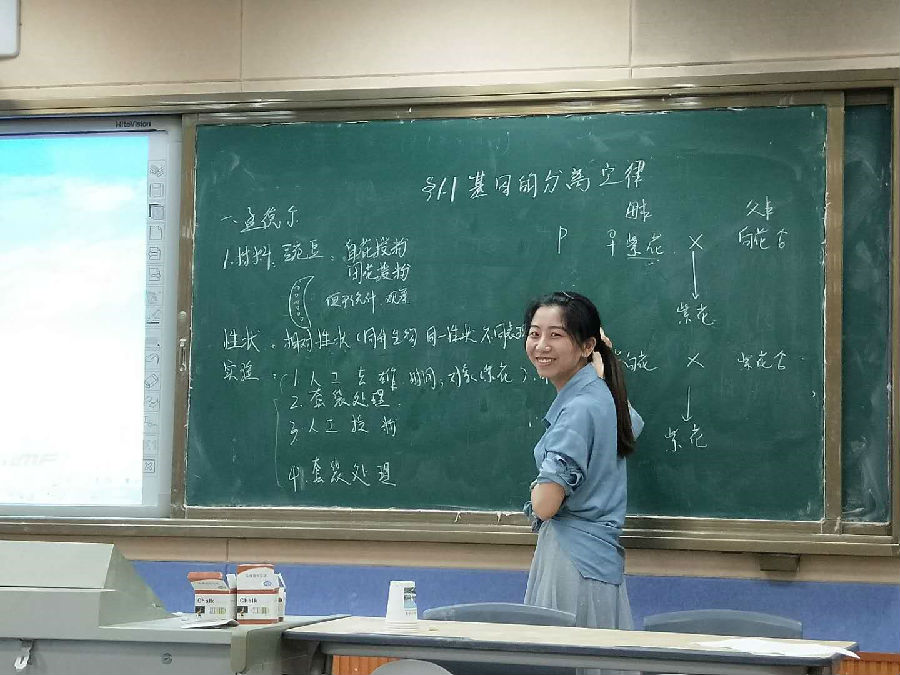 HiteVision
§1.1 基因的分离定律
一、孟德尔
1.材料:豌豆、自花授粉
闭花授粉
便于统计、观察
性状、相对性状(同种生物 同一性状 不同表
实验:1.人工去雄 时间,对象(紫花)
2.套袋处理.
3.人工授粉
4.套袋处理
母本 父本
P ♀紫花 × 白花♂
紫花
白花 × 紫花♂
紫花
Chalk
Chalk